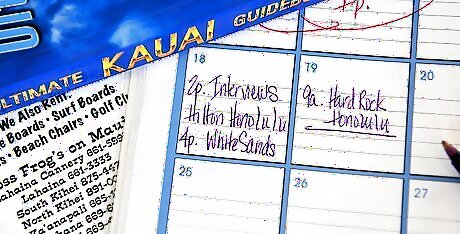 ULTIMATE KAUAI GUIDEBO
We Also Ren
Boards · Surf Boards
s · Beach Chairs · Golf Cl
oss Frog's on Maui
Lahaina Cannery 661-
Lahaina 661-3333
South Kihei 875-44
North Kihei 891-0
Ka'anapali 66
p.
18
2p. Interviews
Hilton Honolulu
4p. WhiteSands
19
9a. Hard Rock
Honolulu
20
25
26
27